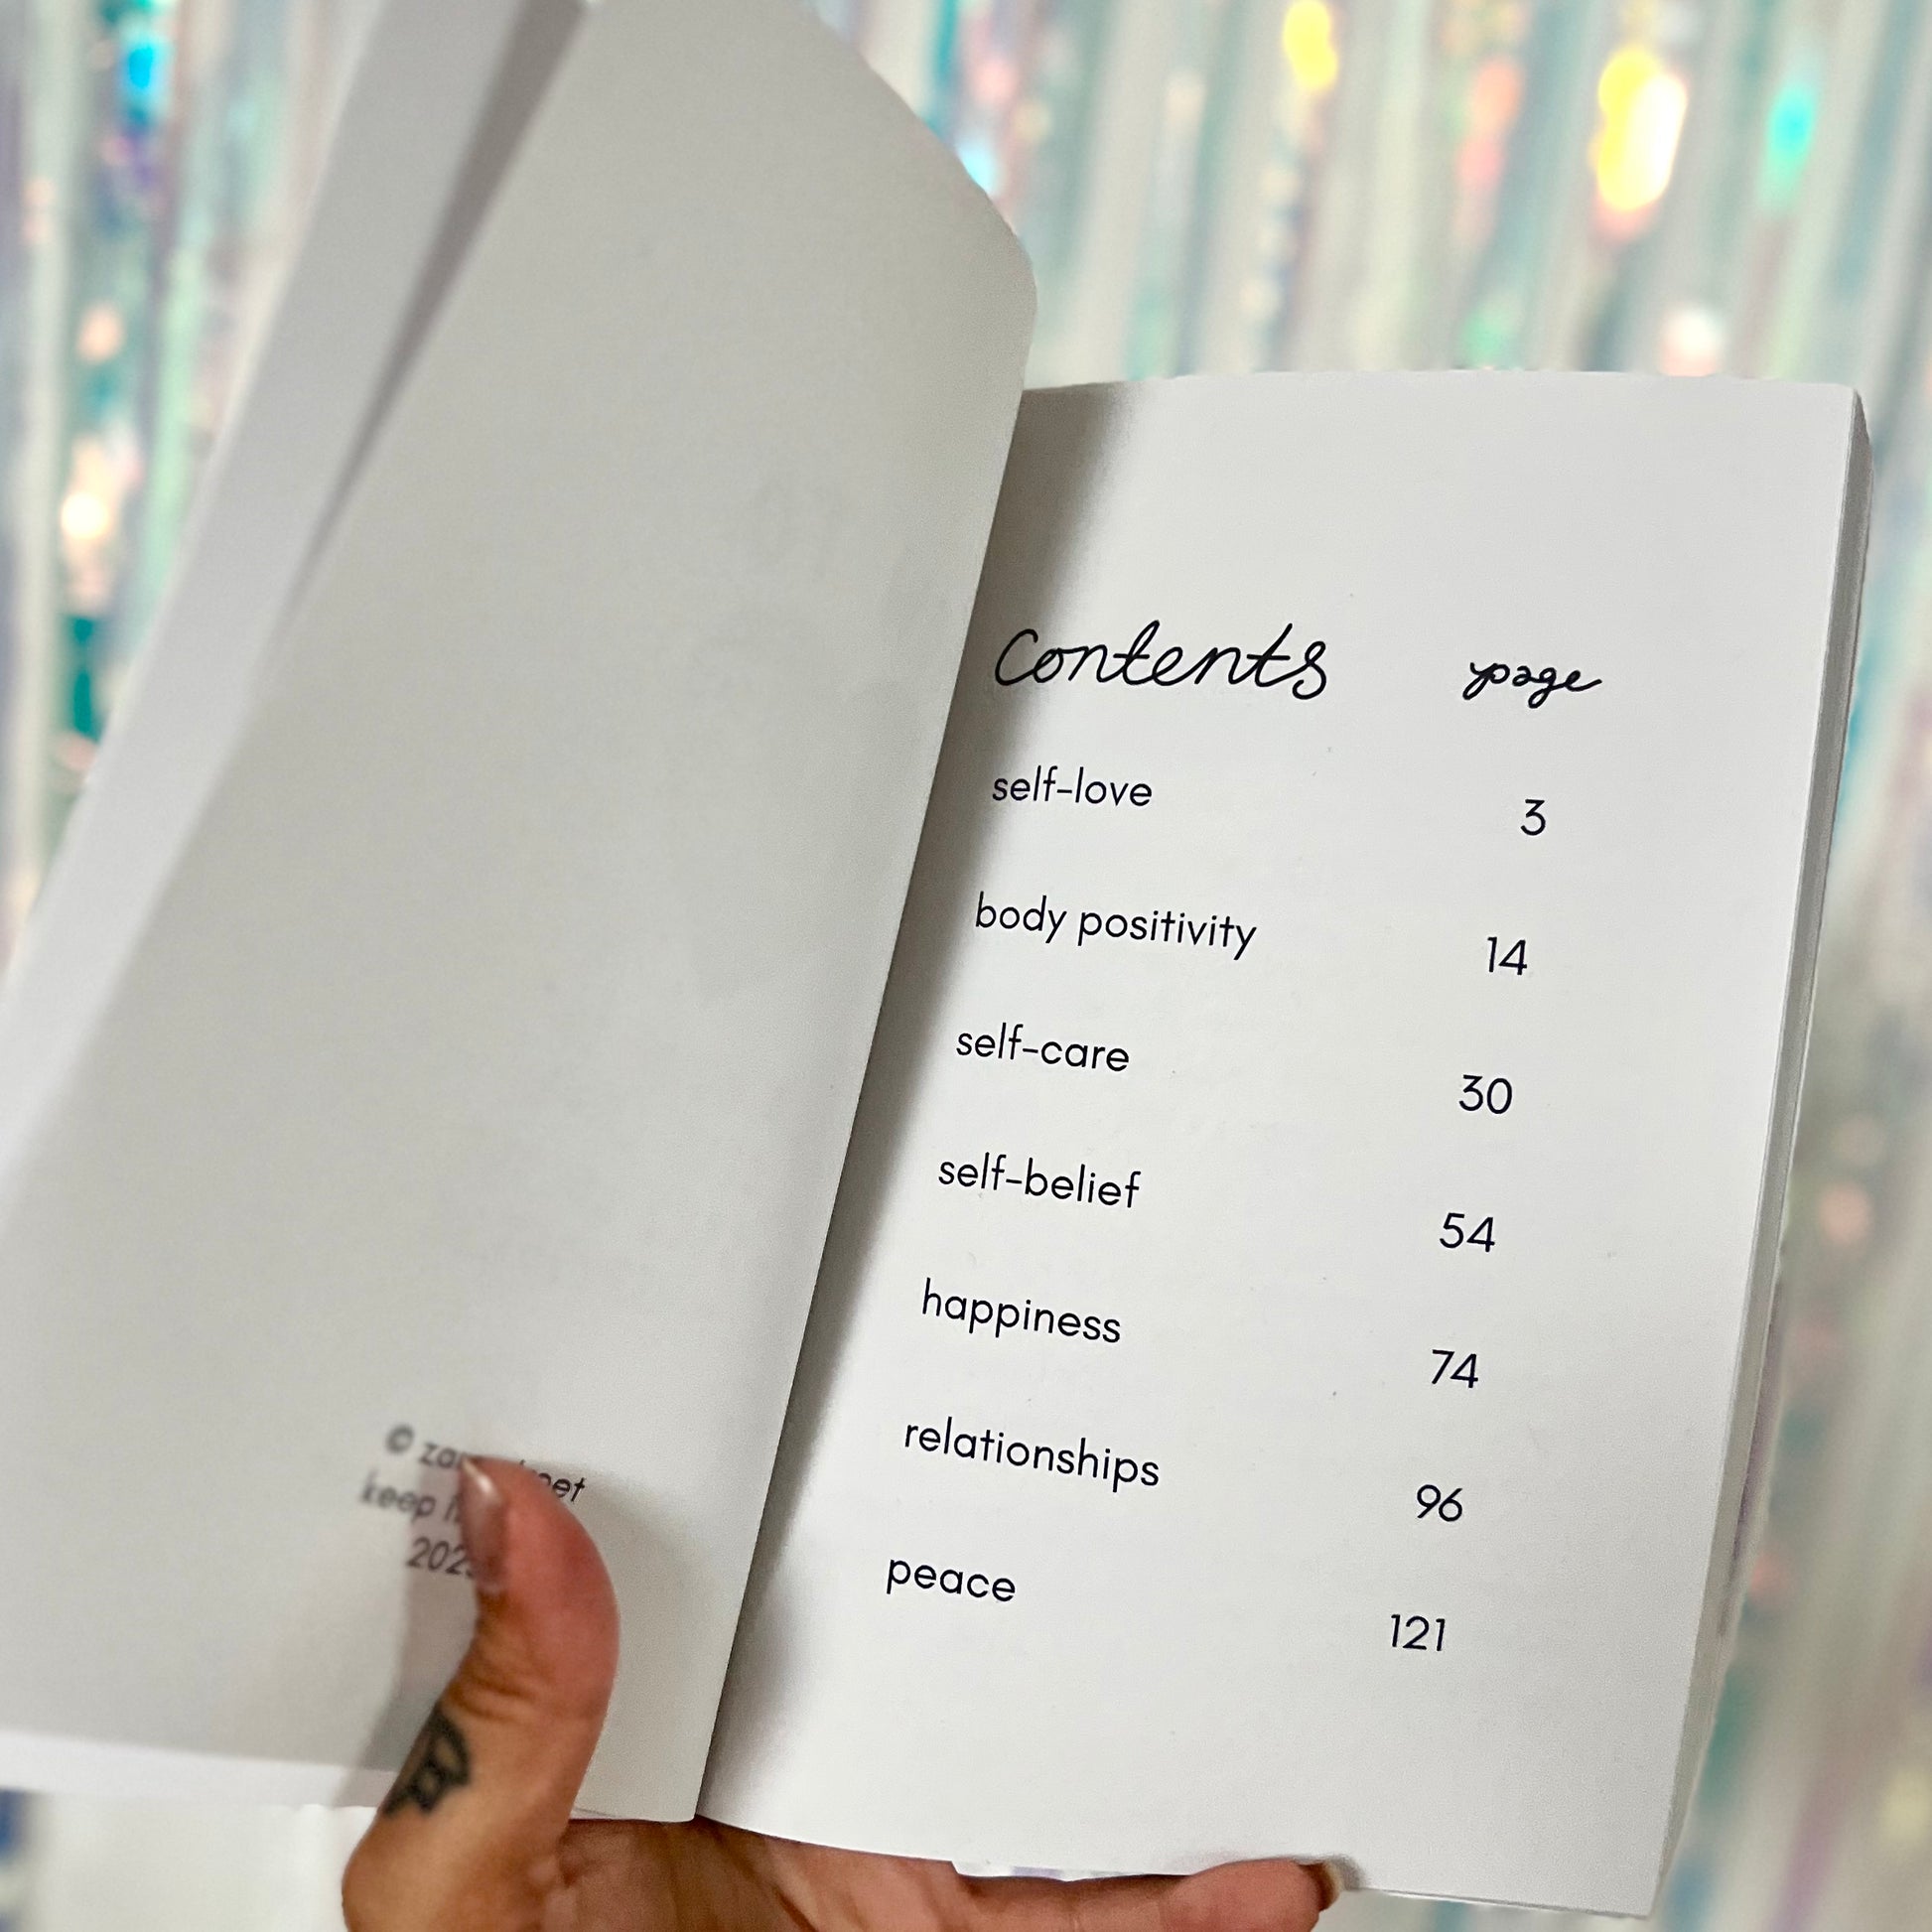 ©
keep
contents page
self-love 3
body positivity 14
self-care 30
self-belief 54
happiness 74
relationships 96
peace 121